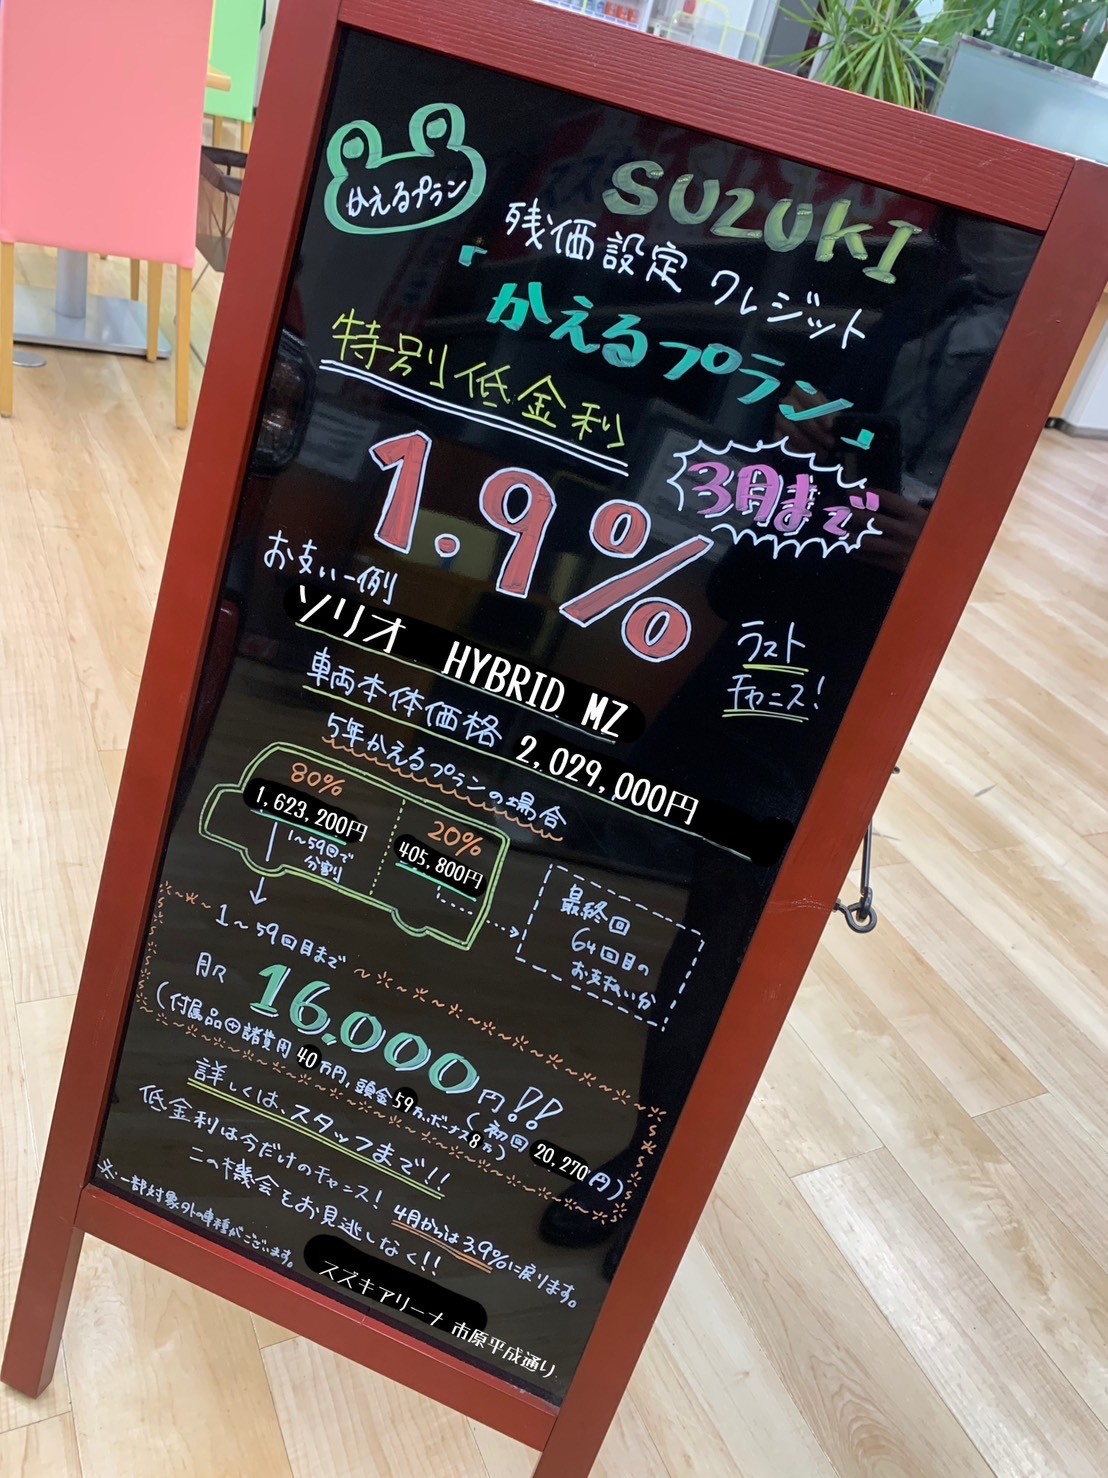 かえるプラン
SUZUKI
残価設定 クレジット
「かえるプラン」
特別低金利
1.9%
3月まで
お支い一例
ラスト
チャンス!
ソリオ HYBRID MZ
車両本体価格 2,029,000円
5年かえるプランの場合
80%
1,623,200円
1〜59回で
分割
20%
405,800円
最終回
64回目の
お支払い分
1〜59回目まで
月々 16,000円!!
(初回 20,270円)
(付属品+諸費用 40万円、頭金59万、ボーナス8万)
詳しくは、スタッフまで!!
低金利は今だけのチャンス! 4月からは3.9%に戻ります。
この機会をお見逃しなく!!
※一部対象外の車種がございます。
スズキアリーナ 市原平成通り